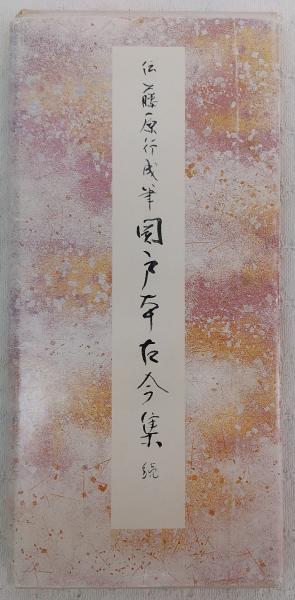 伝藤原行成筆関戸本古今集 続